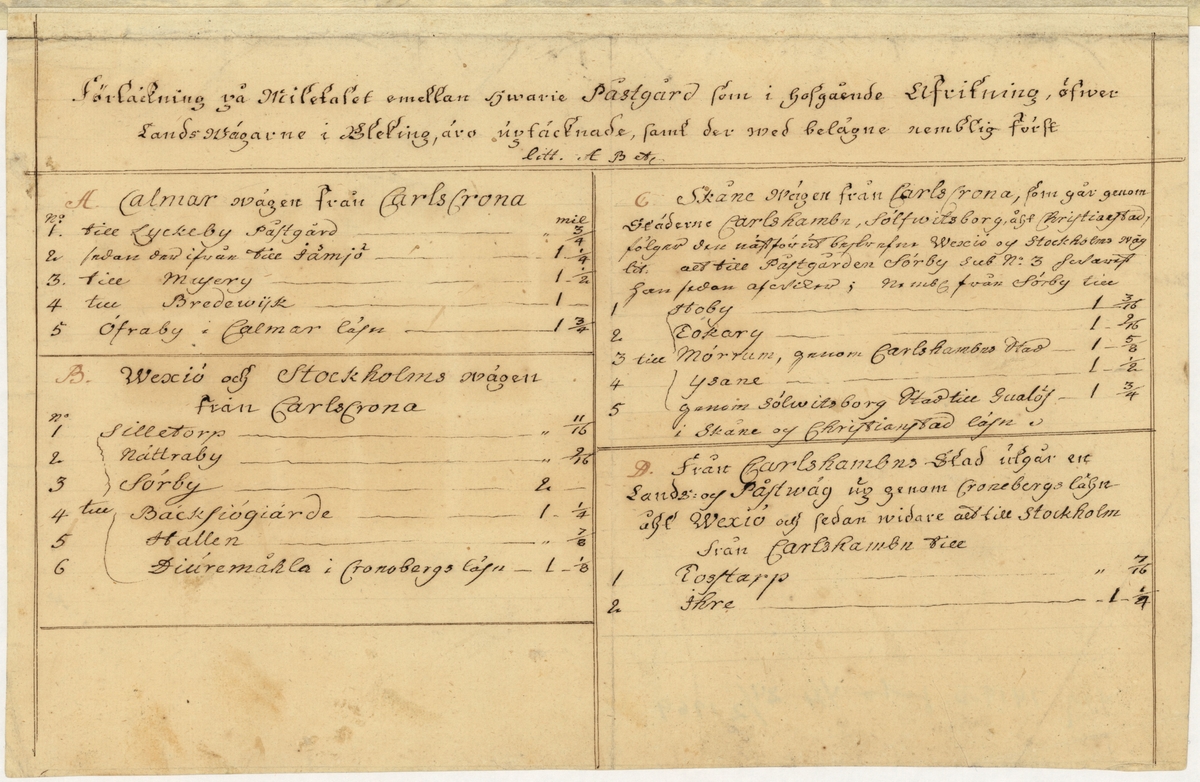 Förtäckning på Miletalet emellan hwarie Påstgård som i hosgående Afritning, öfwer
Lands Wägarne i Bleking, äro uptäcknade, samt der wed belägne nemblig först
litt. A B etc.
A Calmar wägen från CarlsCrona
No mil
1. till Lyckeby Påstgård " 3/4
2 sedan der ifrån till Jämjö 1 1/4
3. till Musery 1 1/2
4 till Bredewijk 1
5 Öfraby i Calmar lähn 1 3/4
B. Wexiö och Stockholms wägen
från CarlsCrona
No
1 Silletorp " 11/16
2 Nättraby " 9/16
3 Sörby 2
4 till Bäcksiögiärde 1 1/4
5 Hallen " 7/8
6 Diüremåhla i Cronobergs lähn 1 1/8
C Skåne wägen från CarlsCrona, som går genom
Städerne Carlshambn, Sölfwitsborg, åht Christianstad,
fölger den näst förut beskrefne Wexiö och Stockholms wäg
lit. alt till Påstgården Sörby sub No 3 hwarest
han sedan afwiker; Nembl från Sörby till
1 Hoby 1 3/16
2 Tökary 1 9/16
3 till Mörrum, genom Carlshambns Stad 1 5/8
4 Ysane 1 1/2
5 genom Sölwitsborg Stad till Gualöf 1 3/4
i Skåne og Christianstad lähn
D. Från Carlshambns Stad utgår en
Lands- och Påstwäg up genom Cronebergs lähn
åht Wexiö och sedan widare alt till Stockholm
från Carlshambn till
1 Tostarp " 7/16
2 Ihre 1 1/4